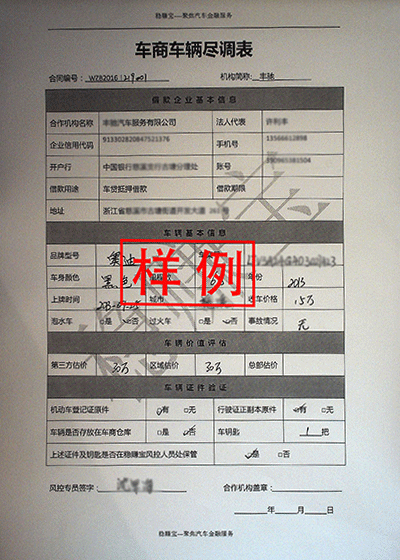 稳赚宝---聚焦汽车金融服务
车商车辆尽调表
合同编号: WZB2016 机构简称: 丰驰
借款企业基本信息
合作机构名称 汽车服务有限公司 法人代表
企业信用代码 913302820847521376 手机号 13566612898
开户行 中国银行慈溪支行古塘分理处 账号
借款用途 车贷抵押借款 借款期限
地址 浙江省慈溪市古塘街道开发大道
车辆基本信息
品牌型号
车身颜色 黑色 年份 2013
上牌时间 城市 收车价格 15万
泡水车 □是 □否 过火车 □是 □否 事故情况 无
样例
车辆价值评估
第三方估价 30万 区域估价 30万 总部估价
车辆证件验证
机动车登记证原件 □有 □无 行驶证正副本原件 □有 □无
车辆是否存放在车商仓库 □是 □否 车钥匙 1 把
上述证件及钥匙是否在稳赚宝风控人员处保管 □是 □否
风控专员签字: 合作机构盖章:
年 月 日
稳赚宝---聚焦汽车金融服务